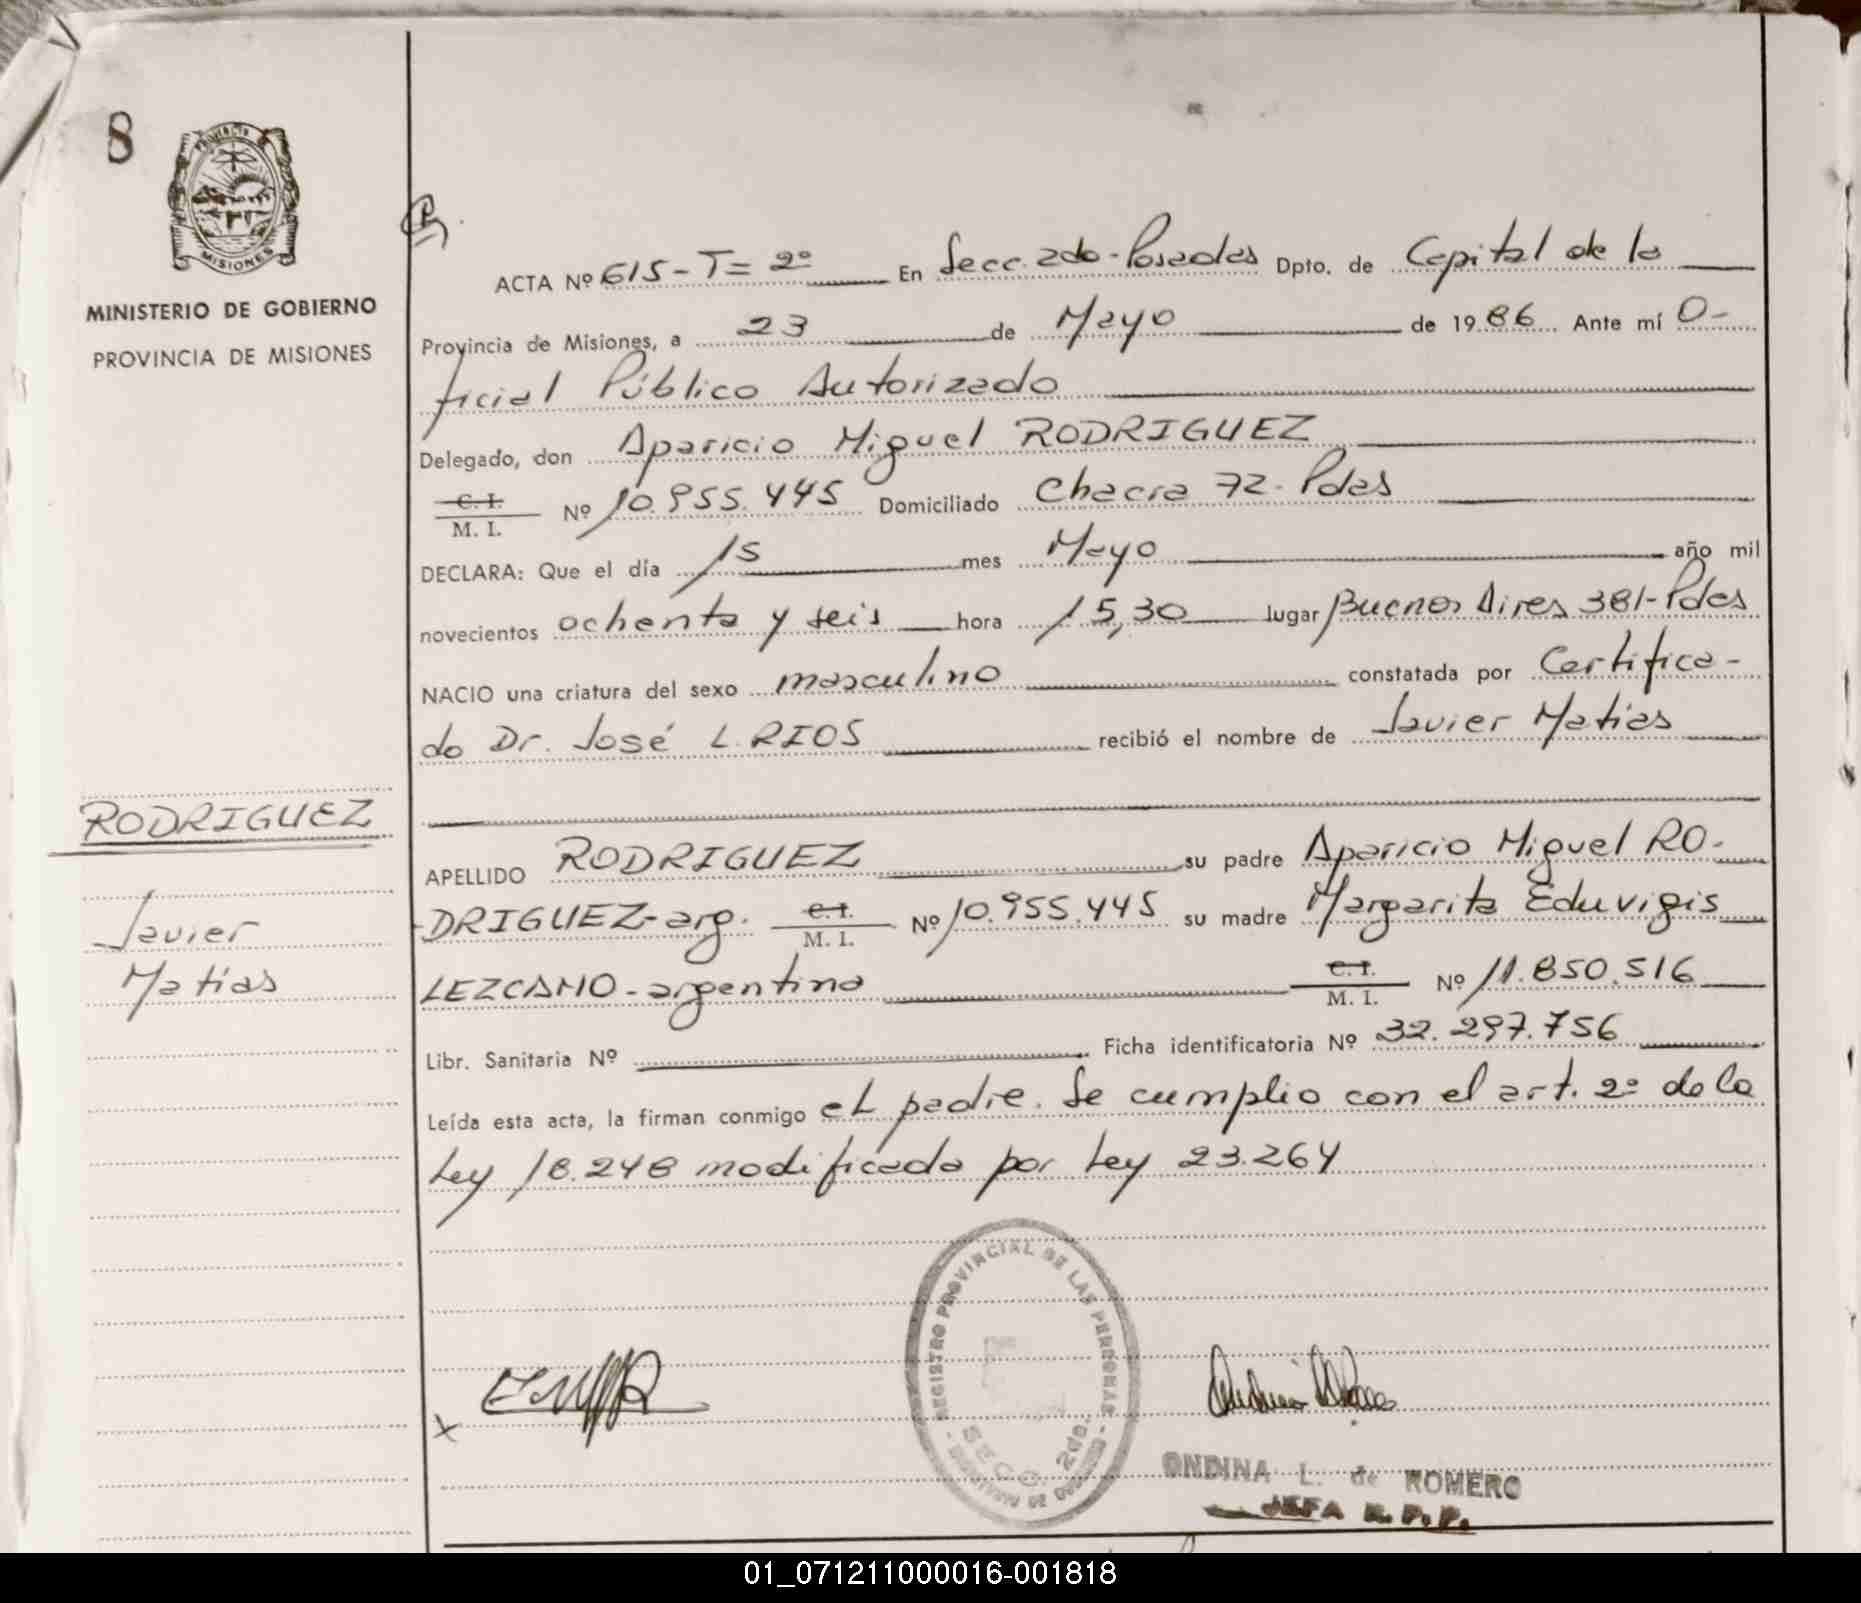 8
PROVINCIA DE
MISIONES
MINISTERIO DE GOBIERNO
PROVINCIA DE MISIONES
RODRIGUEZ
Javier
Matías
ACTA Nº 615-T= 2º En Secc. 2da-Posadas Dpto. de Capital de la
Provincia de Misiones, a 23 de Mayo de 1986 Ante mí O-
ficial Público Autorizado
Delegado, don Aparicio Miguel RODRIGUEZ
C.I. M. I. Nº 10.955.445 Domiciliado Chacra 72-Pdas
DECLARA: Que el día 15 mes Mayo año mil
novecientos ochenta y seis hora 15,30 lugar Buenos Aires 381-Pdas
NACIO una criatura del sexo masculino constatada por Certifica-
do Dr. José L. RIOS recibió el nombre de Javier Matias
APELLIDO RODRIGUEZ su padre Aparicio Miguel RO-
-DRIGUEZ-arg. C.I. M. I. Nº 10.955.445 su madre Margarita Eduvigis
LEZCANO-argentina C.I. M. I. Nº 11.850.516
Libr. Sanitaria Nº Ficha identificatoria Nº 32.297.756
Leída esta acta, la firman conmigo el padre. Se cumplio con el art. 2º de la
Ley 18.248 modificada por Ley 23.264
REGISTRO PROVINCIAL DE LAS PERSONAS
SECC. 2da.
x
ONDINA L. de ROMERO
JEFA R. P. P.
01_071211000016-001818